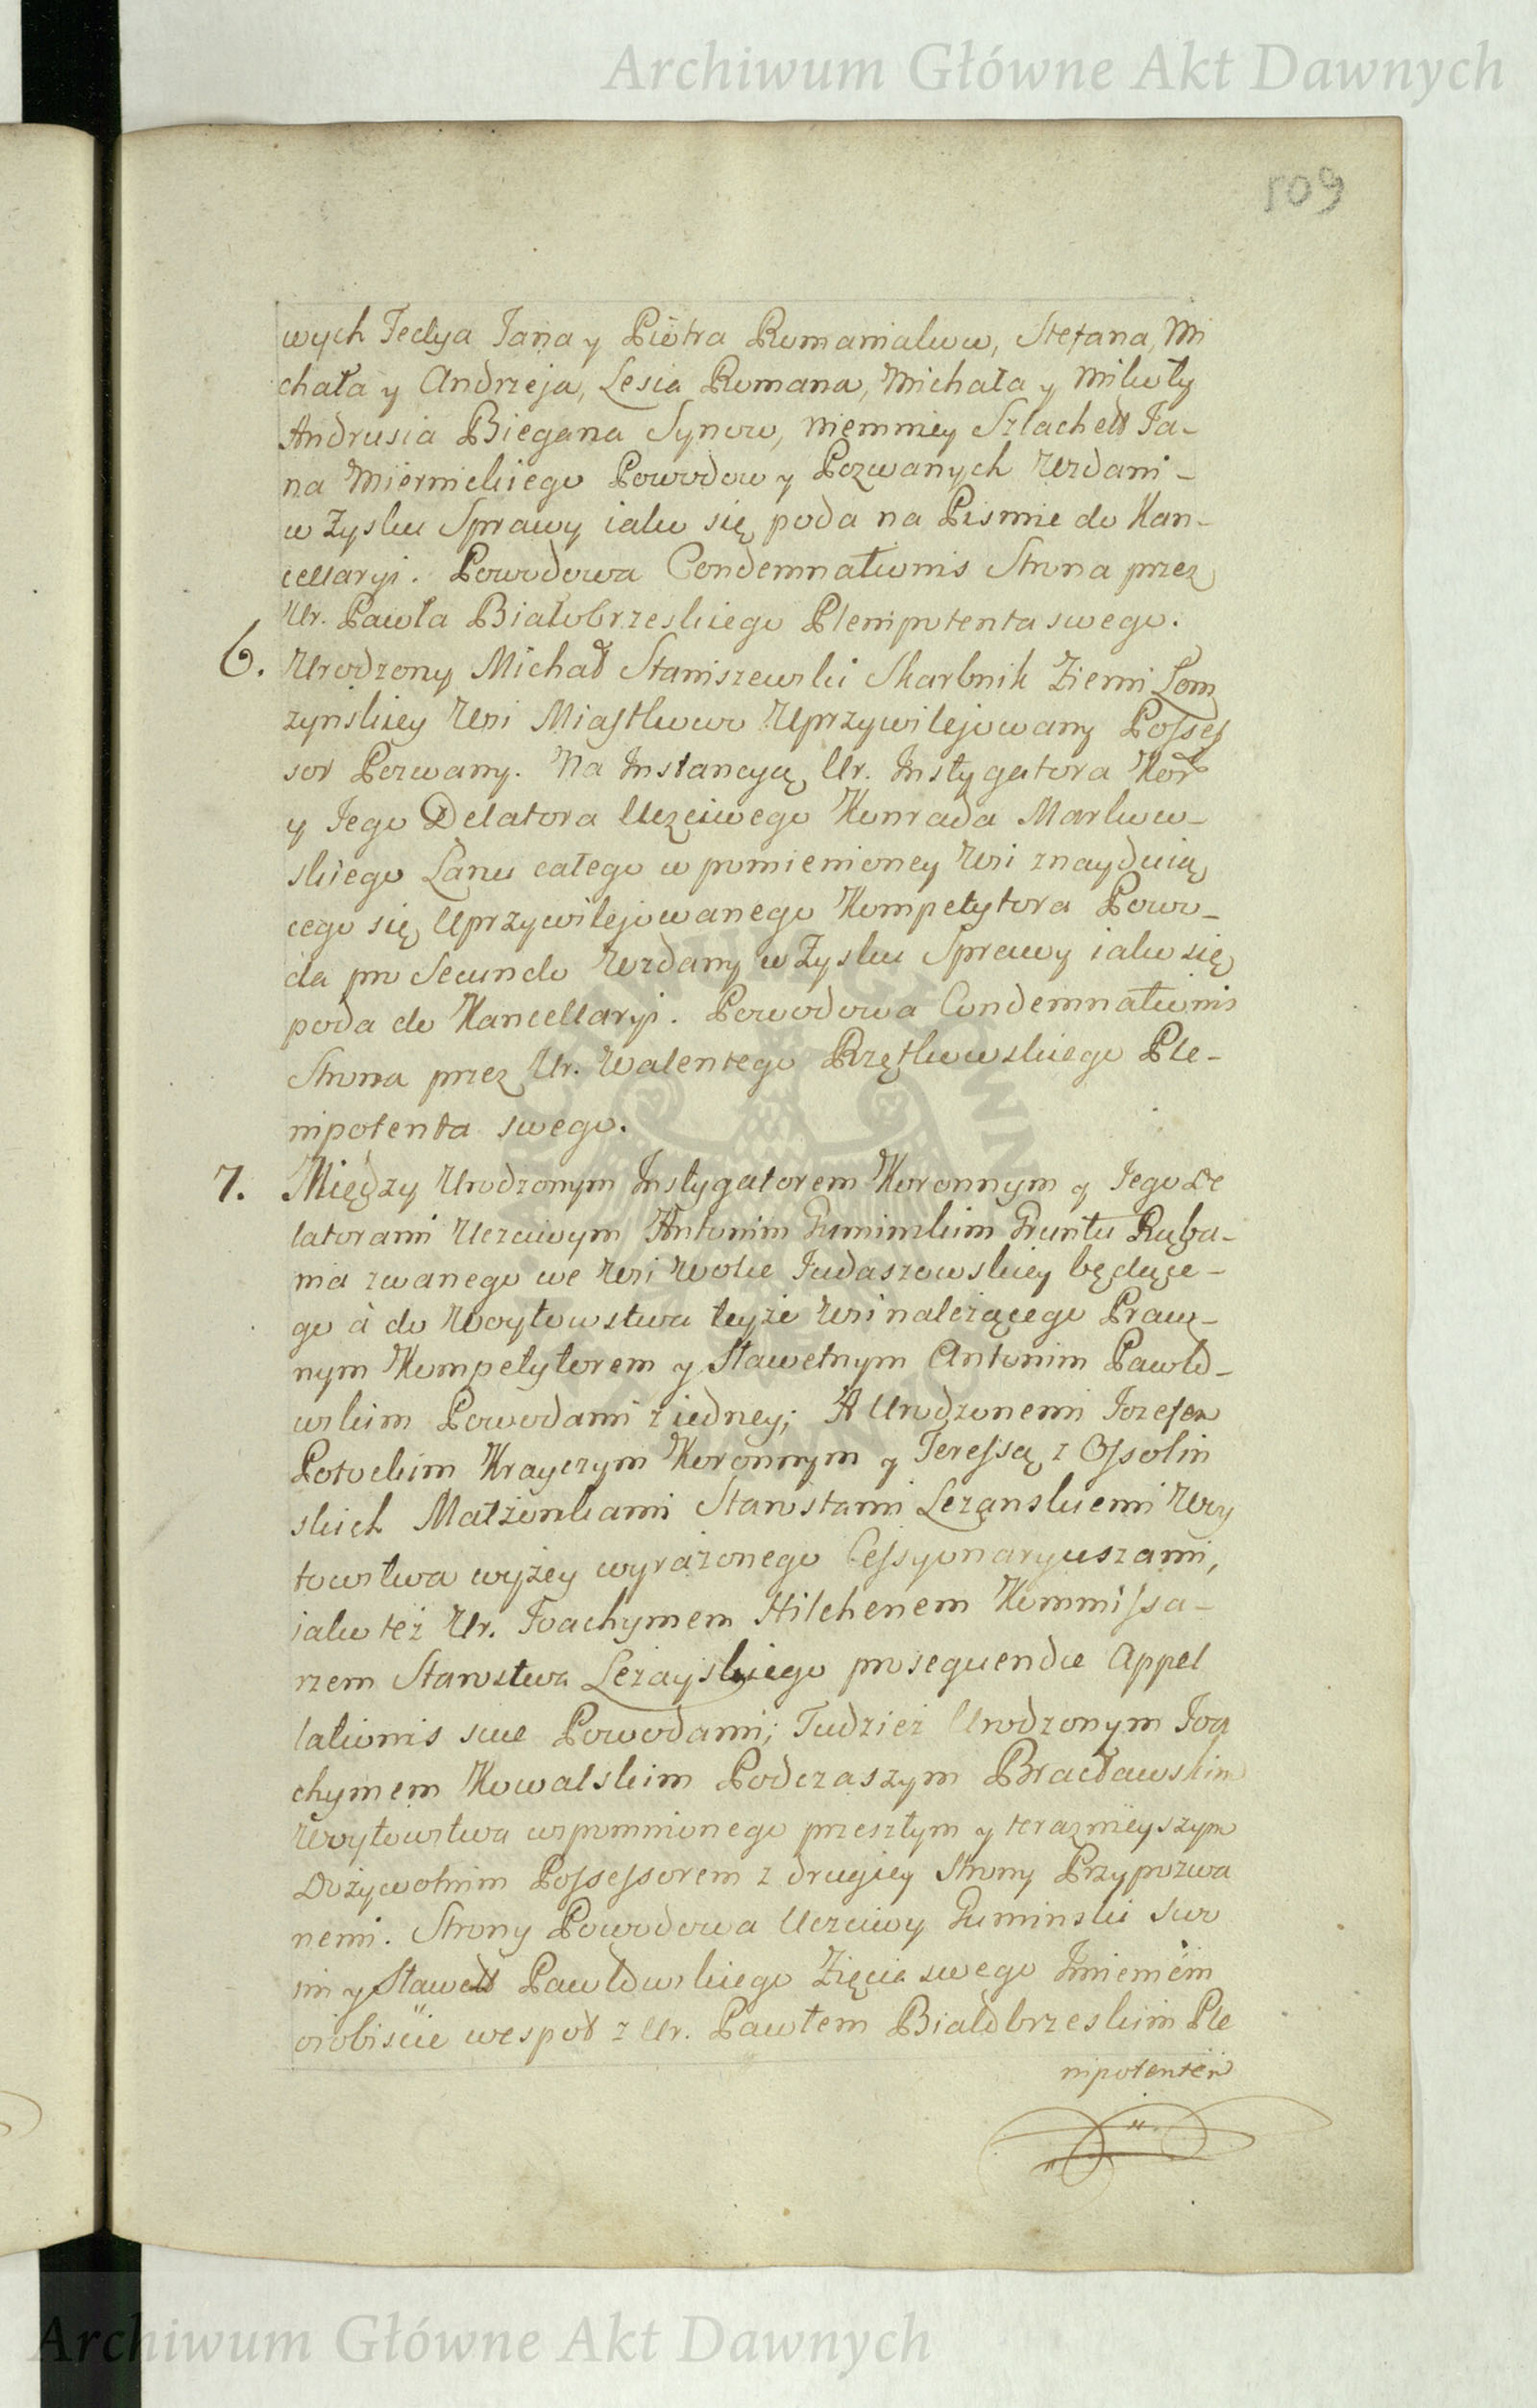 Archiwum Główne Akt Dawnych
109
wych Fedya Jana y Piotra Romaniakow, Stefana, Mi
chała y Andrzeja, Lesia Romana, Michała y Mikoły
Andrusia Biegana Synow, niemniey Szlachett Ja-
na Miernickiego Powodow y Pozwanych Wzdani-
w Zysku Sprawy iako się poda na Pismie do Kan-
cellaryi. Powodowa Condemnationis Strona przez
Ur. Pawła Białobrzeskiego Plenipotenta swego.
6. Urodzony Michał Staniszewski Skarbnik Ziemi Łom
zynskiey Wsi Miastkowo Uprzywilejowany Posses
sor Pozwany. Na Instancyą Ur. Instygatora Kor
y Jego Delatora Uczciwego Konrada Markow-
skiego Łanu całego w pomienioney Wsi znayduią
cego się Uprzywilejowanego Kompetytora Powo-
da pro Secundo Wzdany w Zysku Sprawy iako się
poda do Kancellaryi. Powodowa Condemnationis
Strona przez Ur. Walentego Rzętkowskiego Ple-
nipotenta swego.
7. Między Urodzonym Instygatorem Koronnym y Jego De
latorami Uczciwym Antonim Guminskim Gruntu Rąba-
nia zwanego we Wsi Wolie Judaszowskiey będące-
go à do Woytowstwa teyże Wsi należącego Praw-
nym Kompetytorem y Sławetnym Antonim Pawło-
wskim Powodami z iedney; A Urodzonemi Jozefem
Potockim Krayczym Koronnym y Teressą z Ossolin
skich Małżonkami Starostami Leżanskiemi Woy
towstwa wyżey wyrażonego Cessyonaryuszami,
iako też Ur. Joachymem Hilchenem Kommissa-
rzem Starostwa Leżayskiego prosequendæ Appel
lationis suæ Powodami; Tudzież Urodzonym Joa
chymem Kowalskim Podczaszym Bracławskim
Woytowstwa wspomnionego przeszłym y teraznieyszym
Dożywotnim Possessorem z drugiey Strony Przypozwa
nemi. Strony Powodowa Uczciwy Guminski swo
im y Sławett Pawłowskiego Zięcia swego Imieniem
osobiscie wespoł z Ur. Pawłem Białobrzeskim Ple
nipotentem
Archiwum Główne Akt Dawnych